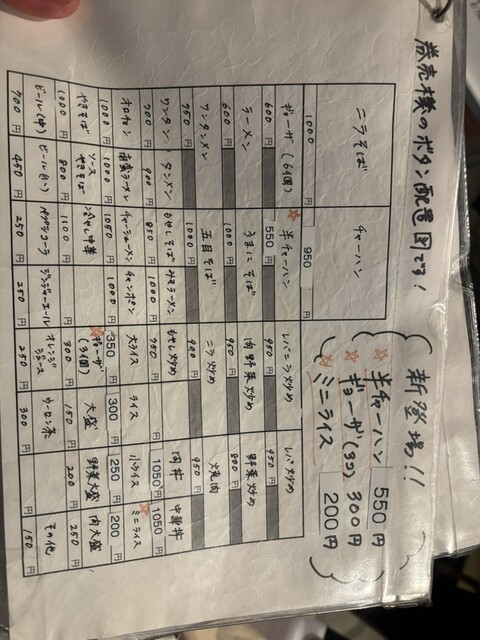 券売機のボタン配置図です!
新登場!!
☆半チャーハン 550円
☆ギョーザ(3コ) 300円
☆ミニライス 200円
ニラそば チャーハン
1000円 950円
ギョーザ(6個) ☆半チャーハン レバニラ炒め レバ炒め
600円 550円 950円 950円
ラーメン うまにそば 肉野菜炒め 野菜炒め
600円 1000円 950円 800円
ワンタンメン 五目そば ニラ炒め 焼肉
750円 1000円 900円 950円
ワンタン タンメン もやしそば みそラーメン もやし炒め 肉丼 中華丼
700円 900円 850円 1000円 700円 1050円 1050円
オロチョン 南蛮ラーメン チャーシューメン チャンポン 大ライス ライス 小ライス ☆ミニライス
1000円 1000円 1050円 1000円 350円 300円 250円 200円
やきそば ソースやきそば 冷し中華 ☆ギョーザ(3個) 大盛 野菜大盛 肉大盛
1000円 800円 1100円 300円 150円 200円 250円
ビール(中) ビール(小) ペプシコーラ ジンジャーエール オレンジジュース ウーロン茶 その他
700円 450円 250円 250円 250円 300円 150円